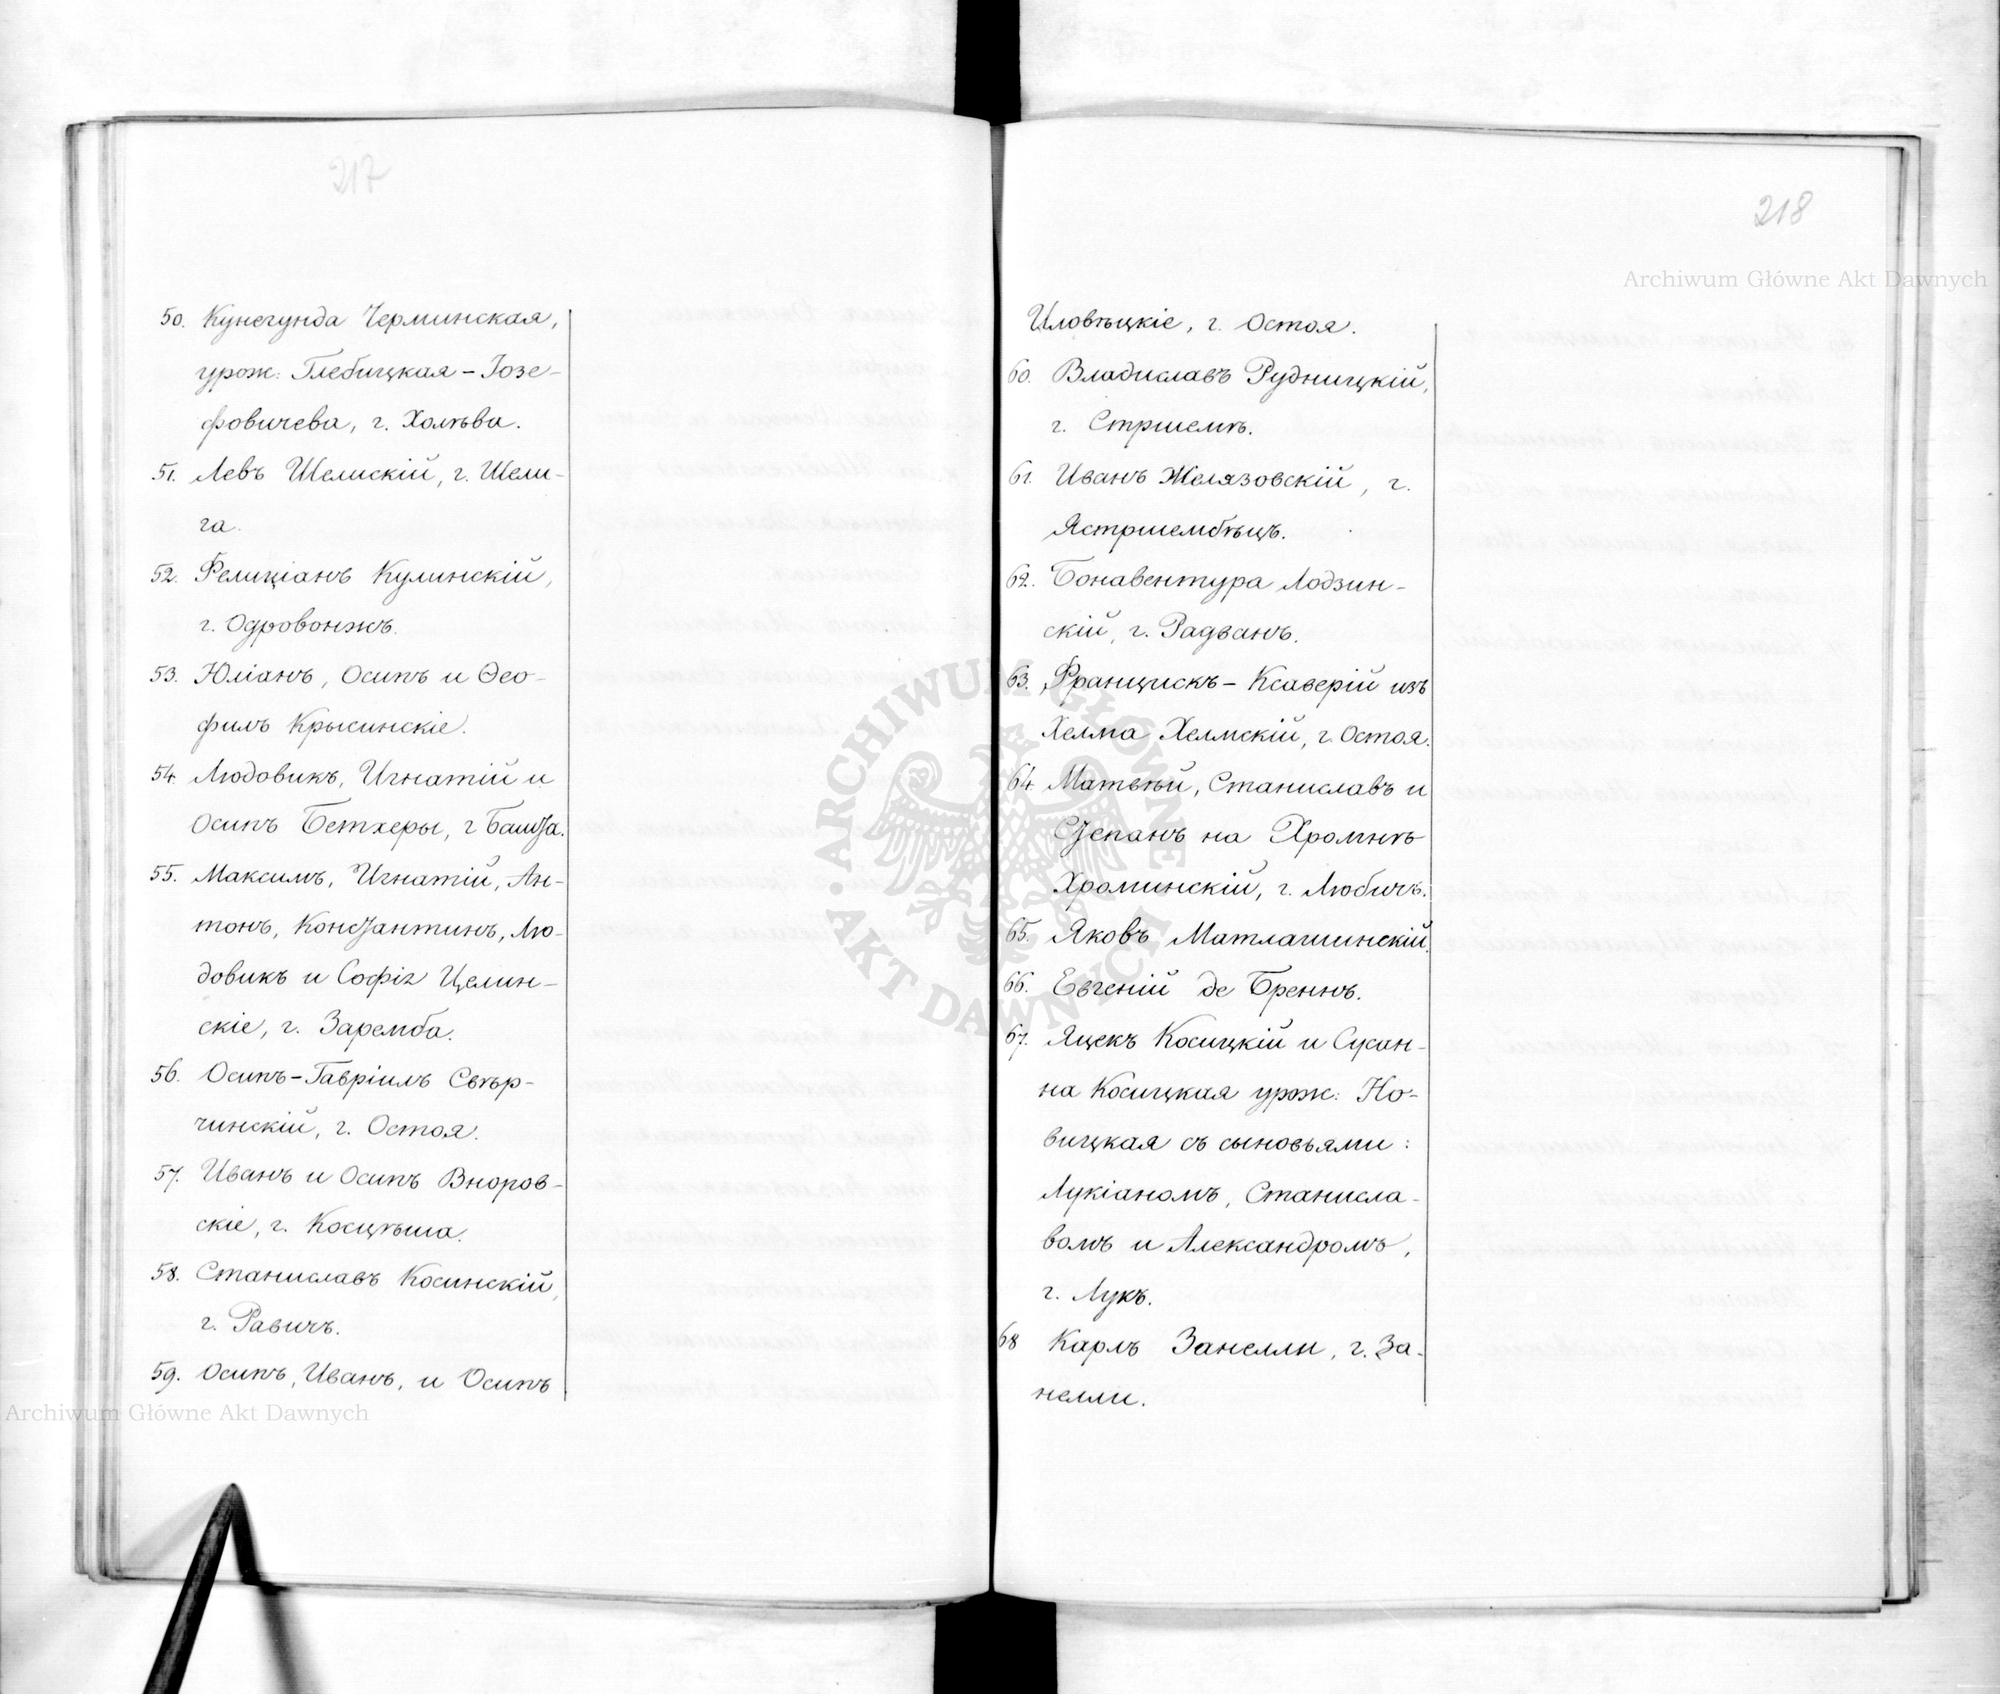 217
50. Кунегунда Черминская,
урож: Глебицкая-Іозе-
фовичева, г. Холѣва.
51. Левъ Шелискій, г. Шели-
га.
52. Фелиціанъ Кулинскій,
г. Одровонжъ.
53. Юліанъ, Осипъ и Ѳео-
филъ Крысинскіе.
54. Людовикъ, Игнатій и
Осипъ Бетхеры, г Башта.
55. Максимъ, Игнатій, Ан-
тонъ, Константинъ, Лю-
довикъ и Софія Целин-
скіе, г. Заремба.
56. Осипъ-Гавріилъ Свѣр-
чинскій, г. Остоя.
57. Иванъ и Осипъ Вноров-
скіе, г. Косцѣша.
58. Станиславъ Косинскій,
г. Равичъ.
59. Осипъ, Иванъ, и Осипъ
Archiwum Główne Akt Dawnych
218
Archiwum Główne Akt Dawnych
Иловѣцкіе, г. Остоя.
60. Владиславъ Рудницкій,
г. Стршемѣ.
61. Иванъ Желязовскій, г.
Ястршембѣцъ.
62. Бонавентура Лодзин-
скій, г. Радванъ.
63. Францискъ-Ксаверій изъ
Хелма Хелмскій, г. Остоя.
64 Матвѣй, Станиславъ и
Степанъ на Хромнѣ
Хроминскій, г. Любичъ.
65. Яковъ Матлашинскій.
66. Евгеній де Бреннъ.
67. Яцекъ Косицкій и Сусан-
на Косицкая урож: Но-
вицкая съ сыновьями:
Лукіаномъ, Станисла-
вомъ и Александромъ,
г. Лукъ.
68 Карлъ Занелли, г. За-
нелли.
ARCHIWUM GŁÓWNE AKT DAWNYCH